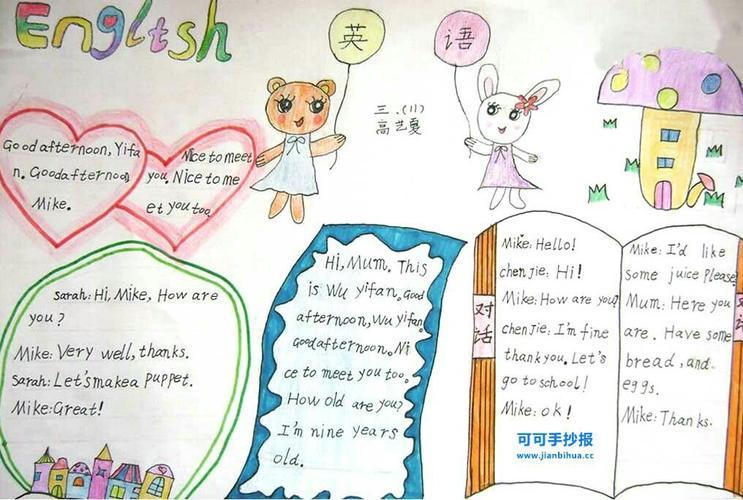 English
英
语
三.(11)
高艺夏
Good afternoon, Yifa
n. Goodafternoon
Mike.
Nice to meet
you. Nice to me
et you too
Sarah: Hi, Mike, How are
you?
Mike: Very well, thanks.
Sarah: Let'smakea puppet.
Mike: Great!
Hi, Mum. This
is Wu yifan。Good
afternoon, Wu yifan
Goodafternoon。Ni
ce to meet you too。
How old are you?
I'm nine years
old.
对话
Mike: Hello!
chen jie: Hi!
Mike: How are you?
chen jie: I'm fine
thank you. Let's
go to school!
Mike: ok!
Mike: I'd like
some juice please
Mum: Here you
are. Have some
bread, and
eggs.
Mike: Thanks.
对话
可可手抄报
www.jianbihua.cc